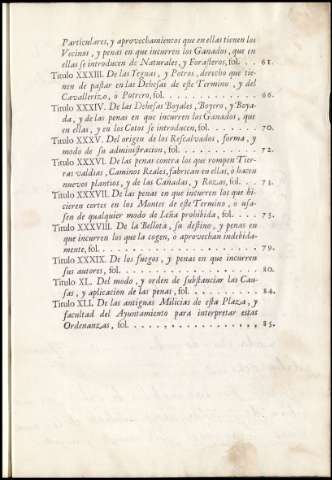 Particulares, y aprovechamientos que en ellas tienen los
Vecinos, y penas en que incurren los Ganados, que en
ellas se introducen de Naturales, y Forasteros, fol. . . 61.
Titulo XXXIII. De las Yeguas, y Potros, derecho que tie-
nen de pastar en las Dehesas de este Termino, y del
Cavallerizo, ò Potrero, fol. . . . . . . . . . . . 66.
Titulo XXXIV. De las Dehesas Boyales, Boyero, y Boya-
da, y de las penas en que incurren los Ganados, que
en ellas, y en los Cotos se introducen, fol. . . . . . 70.
Titulo XXXV. Del origen de los Restalvados, forma, y
modo de su administracion, fol. . . . . . . . . . . 72.
Titulo XXXVI. De las penas contra los que rompen Tier-
ras valdias, Caminos Reales, fabrican en ellas, ò hacen
nuevos plantios, y de las Cañadas, y Rozas, fol. . . 73.
Titulo XXXVII. De las penas en que incurren los que hi-
cieren cortes en los Montes de este Termino, ò usa-
sen de qualquier modo de Leña prohibida, fol. . . . 75.
Titulo XXXVIII. De la Bellota, su destino, y penas en
que incurren los que la cogen, ò aprovechan indebida-
mente, fol. . . . . . . . . . . . . . . . . . . . 79.
Titulo XXXIX. De los fuegos, y penas en que incurren
sus autores, fol. . . . . . . . . . . . . . . . . . 80.
Titulo XL. Del modo, y orden de substanciar las Cau-
sas, y aplicacion de las penas, fol. . . . . . . . . 84.
Titulo XLI. De las antiguas Milicias de esta Plaza, y
facultad del Ayuntamiento para interpretar estas
Ordenanzas, fol. . . . . . . . . . . . . . . . . . 85.